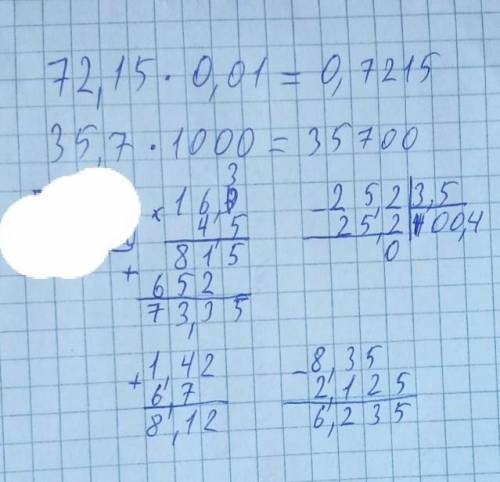 72,15 · 0,01 = 0,7215
35,7 · 1000 = 35700
× 16,3
4,5
815
+ 652
73,35
- 25,2 3,5
25,2
0
+ 1,42
6,7
8,12
- 8,35
2,125
6,235